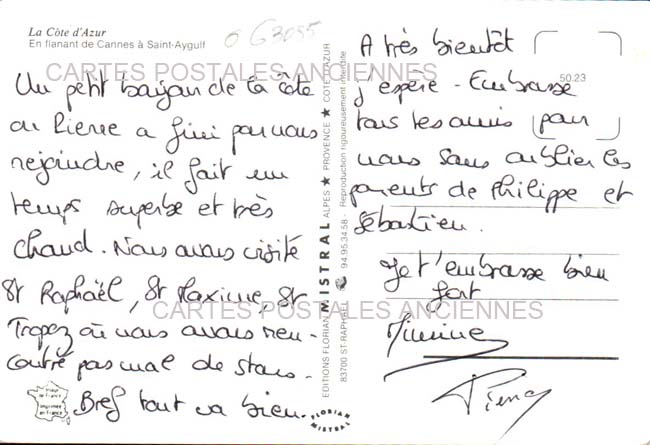 La Côte d'Azur
En flanant de Cannes à Saint-Aygulf
G3055
CARTES POSTALES ANCIENNES
Un petit bonjour de la côte
où Pierre a fini par nous
rejoindre, il fait un
temps superbe et très
chaud. Nous avons visité
St Raphaël, St Maxime, St
Tropez où nous avons ren-
contré pas mal de stars.
Bref tout va bien.
EDITIONS FLORIAN MISTRAL ALPES ★ PROVENCE ★ COTE D'AZUR
83700 ST-RAPHAËL 94.95.34.58 - Reproduction rigoureusement interdite
FLORIAN MISTRAL
50.23
A très bientôt
j'espère - Embrasse
tous les amis pour
nous sans oublier les
parents de Philippe et
Sébastien.
Je t'embrasse bien
fort
CARTES POSTALES ANCIENNES
Pierre